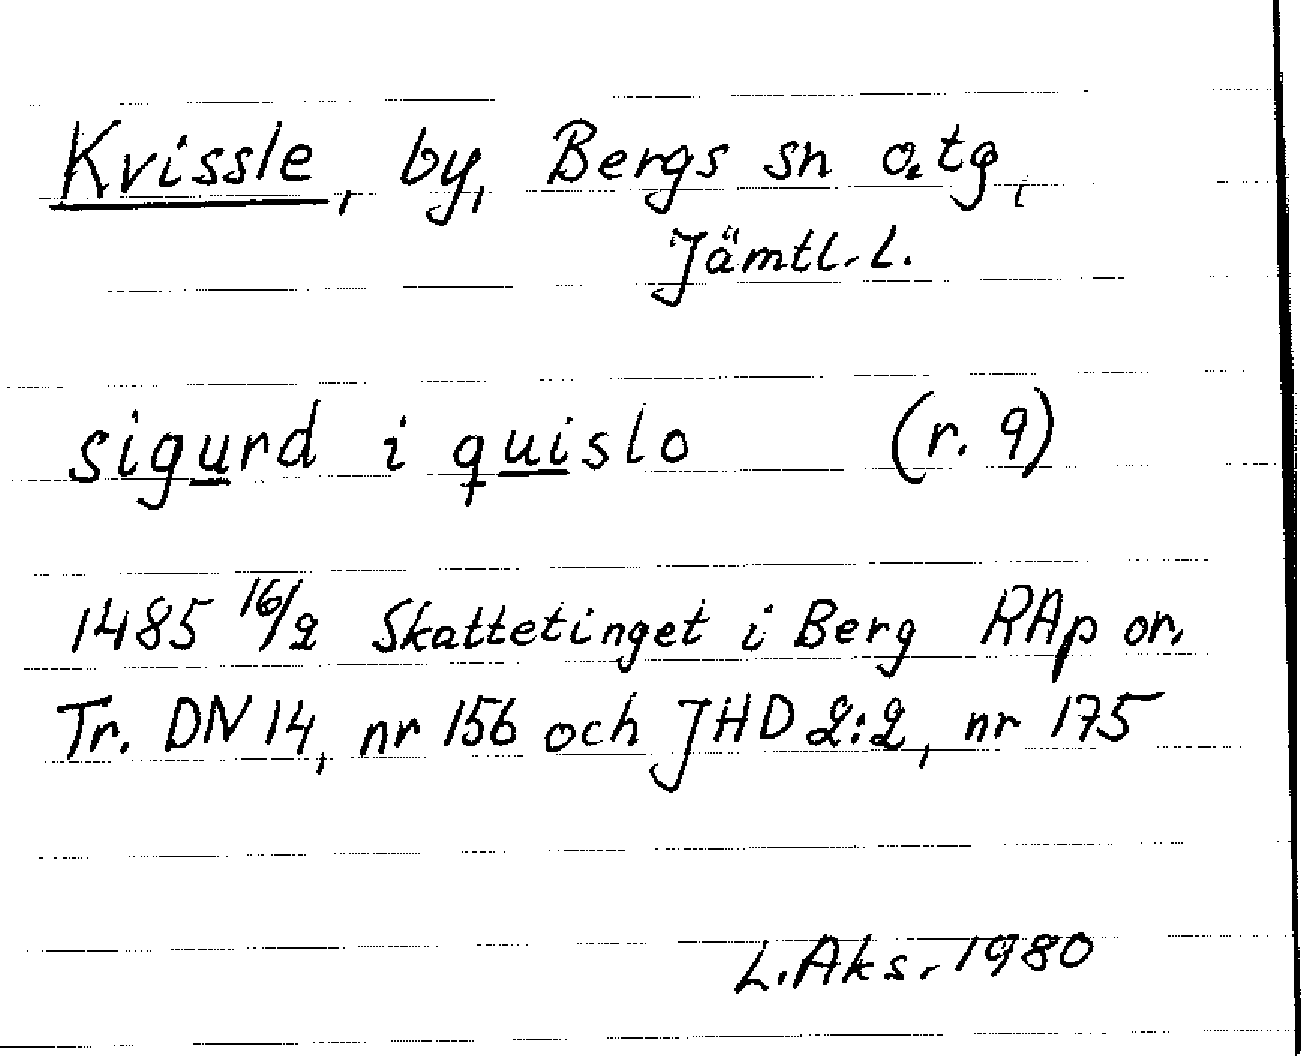 Kvissle, by, Bergs sn o. tg,
Jämtl. L.
sigurd i quislo (r. 9)
1485 16/2 Skattetinget i Berg RAp or.
Tr. DN 14, nr 156 och JHD 2:2, nr 175
L. Aks. 1980